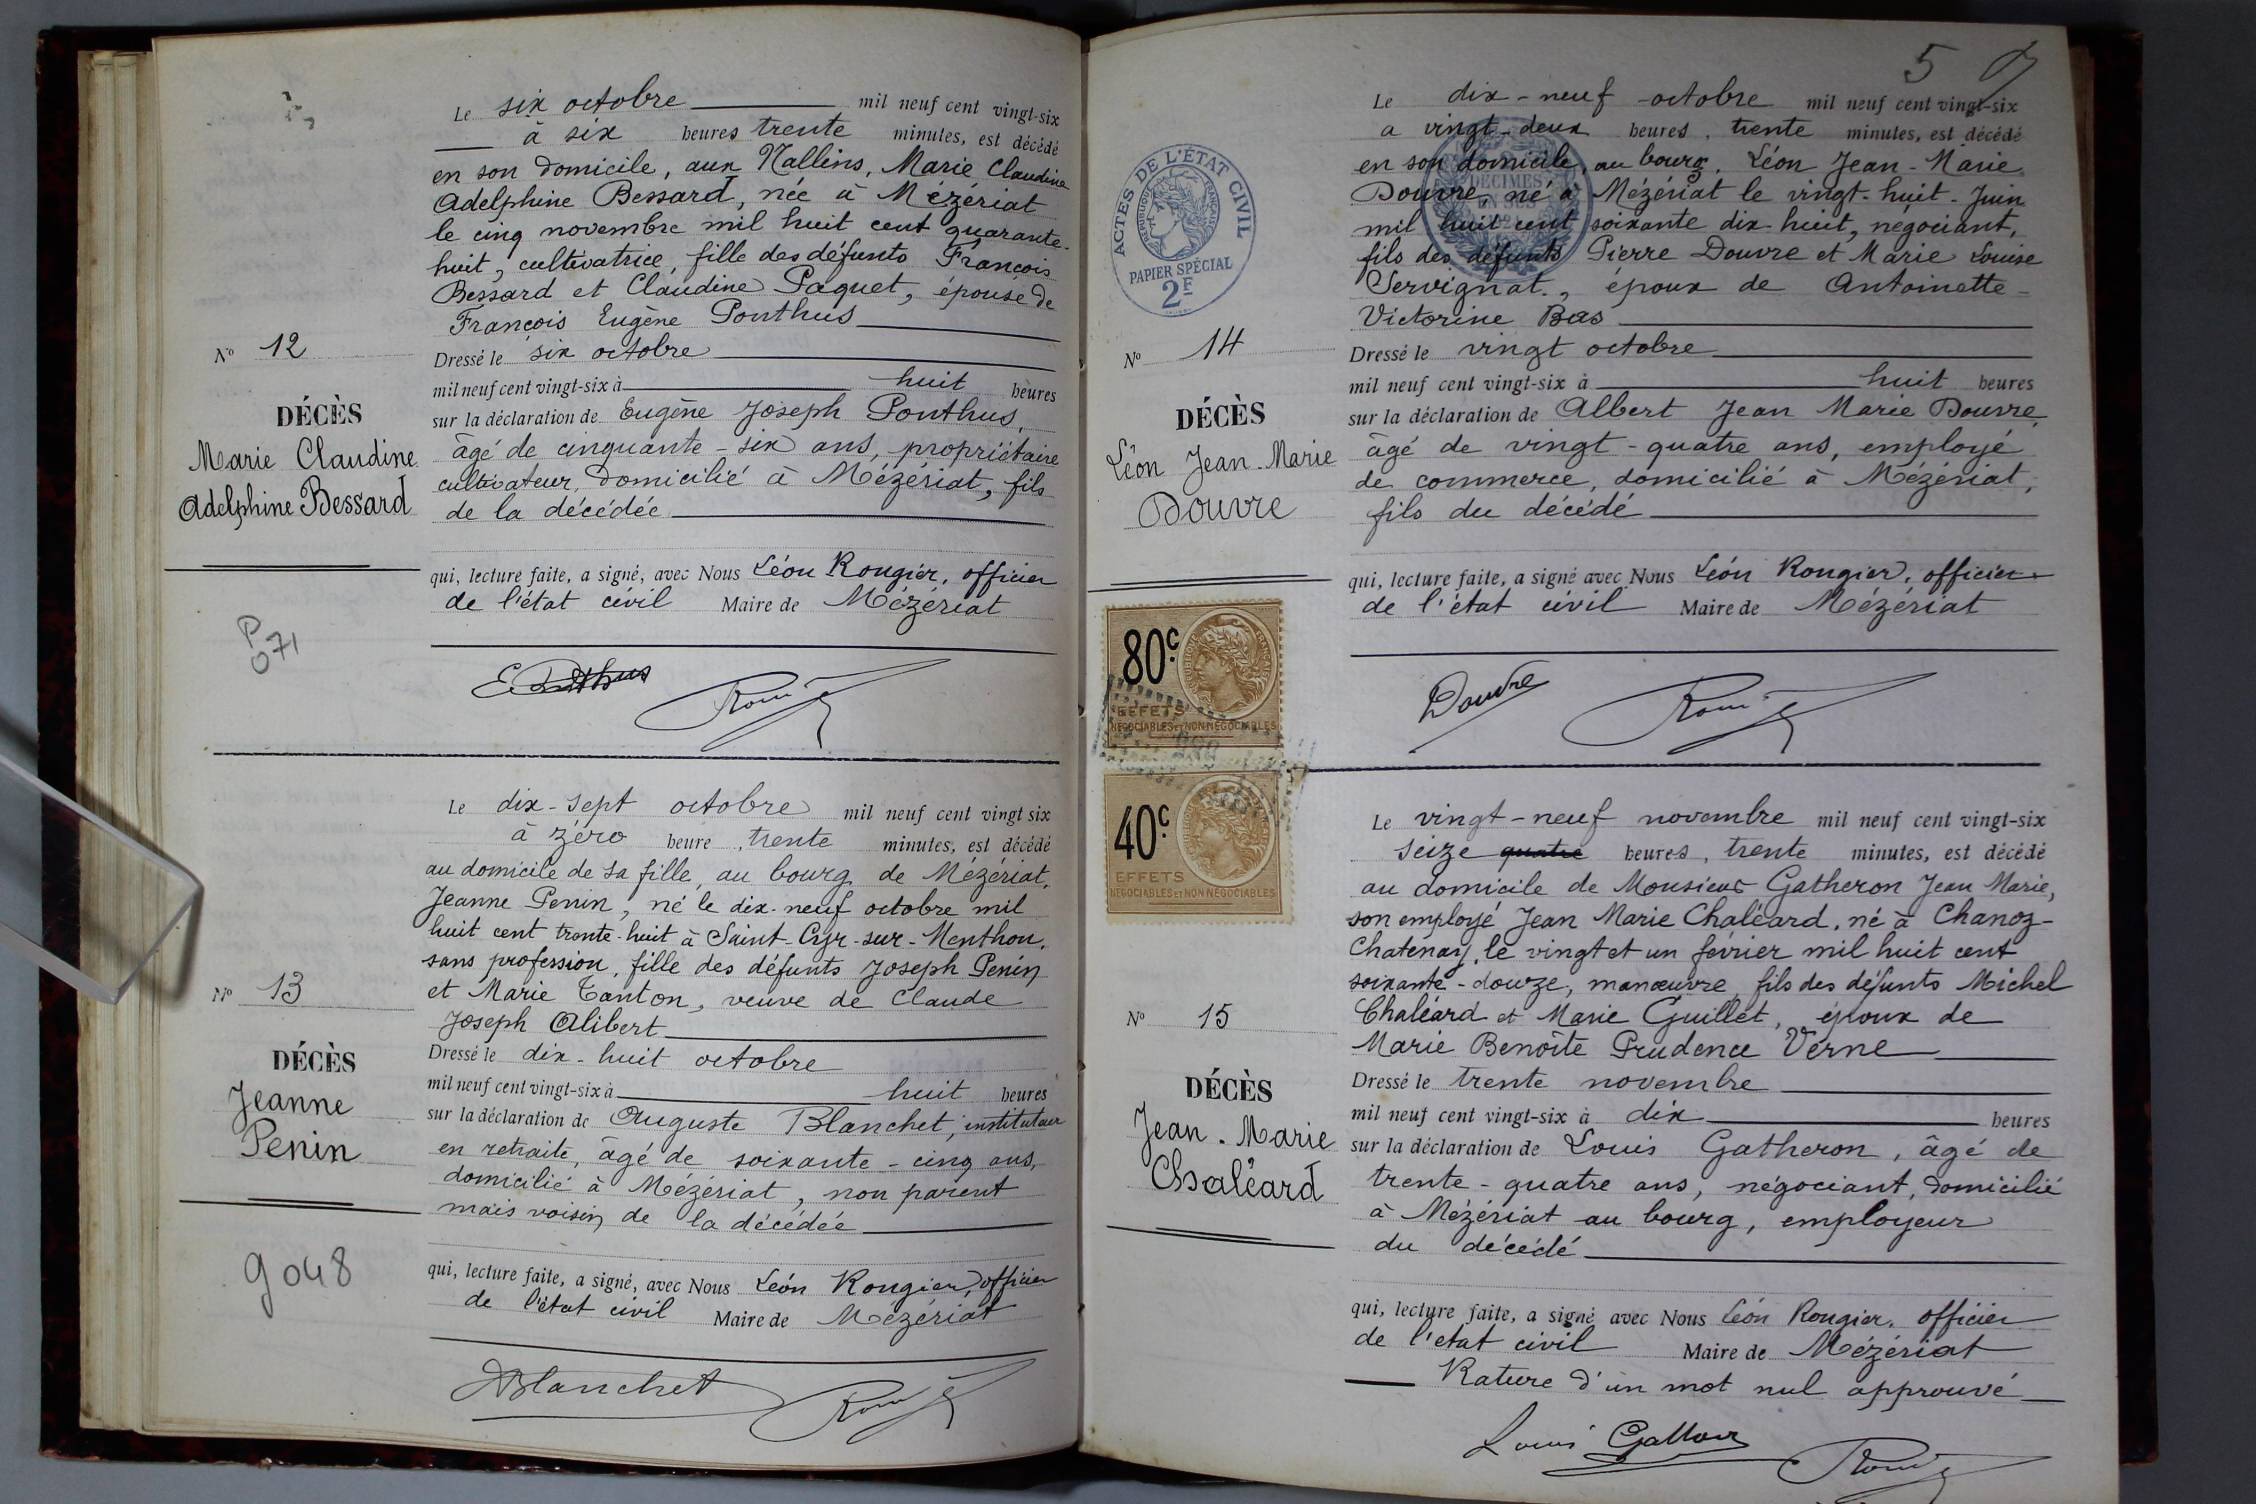 Le six octobre mil neuf cent vingt-six
à six heures trente minutes, est décédé
en son domicile, aux Nallins, Marie Claudine
Adelphine Bessard, née à Mézériat
le cinq novembre mil huit cent quarante-
huit, cultivatrice, fille des défunts François
Bessard et Claudine Paquet, épouse de
François Eugène Ponthus
N° 12
Dressé le six octobre
mil neuf cent vingt-six à huit heures
DÉCÈS
sur la déclaration de Eugène Joseph Ponthus,
Marie Claudine
Adelphine Bessard
âgé de cinquante-six ans, propriétaire
cultivateur, domicilié à Mézériat, fils
de la décédée
qui, lecture faite, a signé, avec Nous Léon Rougier, officier
de l'état civil Maire de Mézériat
P
071
E. Ponthus
Le dix-sept octobre mil neuf cent vingt six
à zéro heure, trente minutes, est décédé
au domicile de sa fille, au bourg de Mézériat,
Jeanne Penin, né le dix-neuf octobre mil
huit cent trente-huit à Saint-Cyr-sur-Menthon,
sans profession, fille des défunts Joseph Penin
et Marie Tanton, veuve de Claude
Joseph Alibert
N° 13
Dressé le dix-huit octobre
mil neuf cent vingt-six à huit heures
DÉCÈS
Jeanne
Penin
sur la déclaration de Auguste Blanchet, instituteur
en retraite, âgé de soixante-cinq ans,
domicilié à Mézériat, non parent
mais voisin de la décédée
qui, lecture faite, a signé, avec Nous Léon Rougier, officier
de l'état civil Maire de Mézériat
9048
ABlanchet
5
Le dix-neuf octobre mil neuf cent vingt-six
a vingt-deux heures, trente minutes, est décédé
en son domicile, au bourg, Léon Jean-Marie
Douvre, né à Mézériat le vingt-huit Juin
mil huit cent soixante dix-huit, négociant,
fils des défunts Pierre Douvre et Marie Louise
Servignat, époux de Antoinette
Victorine Bas
DÉCIMES
EN SUS
ACTES DE L'ÉTAT CIVIL
RÉPUBLIQUE FRANÇAISE
PAPIER SPÉCIAL
2F
N° 14
Dressé le vingt octobre
mil neuf cent vingt-six à huit heures
DÉCÈS
Léon Jean-Marie
Douvre
sur la déclaration de Albert Jean Marie Douvre,
âgé de vingt-quatre ans, employé
de commerce, domicilié à Mézériat,
fils du décédé
qui, lecture faite, a signé avec Nous Léon Rougier, officier
de l'état civil Maire de Mézériat
80c
EFFETS
NÉGOCIABLES ET NON NÉGOCIABLES
40c
EFFETS
NÉGOCIABLES ET NON NÉGOCIABLES
Douvre
Le vingt-neuf novembre mil neuf cent vingt-six
seize quatre heures, trente minutes, est décédé
au domicile de Monsieur Gatheron Jean Marie,
son employé Jean Marie Chaléard, né à Chanoz-
Chatenay, le vingt et un février mil huit cent
soixante-douze, manœuvre, fils des défunts Michel
Chaléard et Marie Guillet, époux de
Marie Benoîte Prudence Verne
N° 15
Dressé le trente novembre
mil neuf cent vingt-six à dix heures
DÉCÈS
Jean-Marie
Chaléard
sur la déclaration de Louis Gatheron, âgé de
trente-quatre ans, négociant, domicilié
à Mézériat au bourg, employeur
du décédé
qui, lecture faite, a signé avec Nous Léon Rougier, officier
de l'état civil Maire de Mézériat
Rature d'un mot nul approuvé
Louis